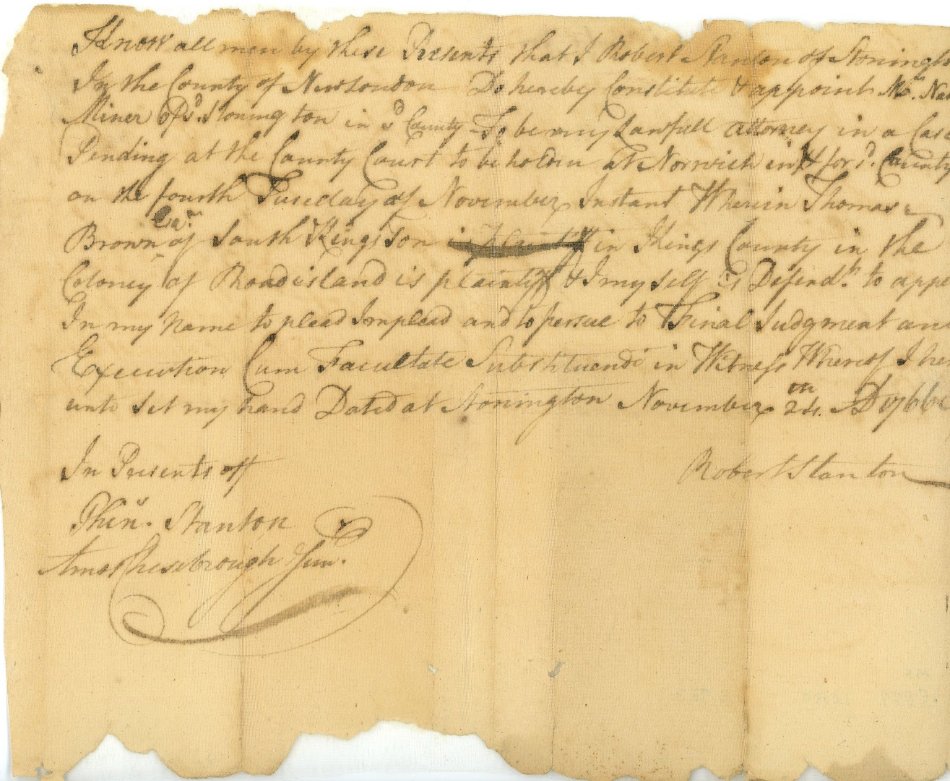 Know all men by these Presents that I Robert Stanton of Stoningto
In the County of Newlondon Do hereby Constitute & appoint Mr. Na
Miner of sd. Stonington in sd. County To be my Lawfull attorney in a Cas
Pending at the County Court to be holden at Norwich in & for sd. County
on the fourth Tuesday of November Instant Wherein Thomas
Esqr.
Brown of South Kingston in Kings County in the
Coloney of Rhoadisland is plaintiff & I my self is Defendt. to app
In my Name to plead Implead and to persue to Final Judgment an
Execution Cum Facultate Substituendi in Witness Whereof I he
unto Set my hand Dated at Stonington November 24. AD 1766
In Presents off
Robert Stanton
Phins. Stanton
Amos Chesebrough Junr.